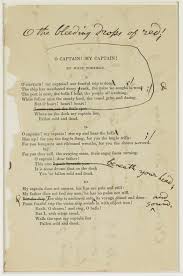 O the bleeding drops of red!
O CAPTAIN! MY CAPTAIN!
BY WALT WHITMAN.
I.
O CAPTAIN! my captain! our fearful trip is done;
The ship has weathered every the prize we sought is won;
The port is near, the bells I hear, the people all exulting,
While follow eyes the steady keel, the vessel grim and daring
But O heart! heart! heart!
the little spot
Where on the deck my captain lies,
Fallen cold and dead.
II.
O captain! my captain! rise up and hear the bells
Rise up! for you the flag is flung, for you the bugle trills
For you bouquets and ribboned wreaths, for you the shores
For you they call, the swaying mass, their eager faces turning
O captain! dear father!
This arm
beneath your head,
It is some dream that on the deck
You've fallen cold and dead.
III.
My captain does not answer, his lips are pale and still
My father does not feel my arm, he has no pulse nor will
the ship
and
sound,
Exult, O shores! and ring, O bells!
But I, with
Walk the spot my captain lies
Fallen cold and dead.